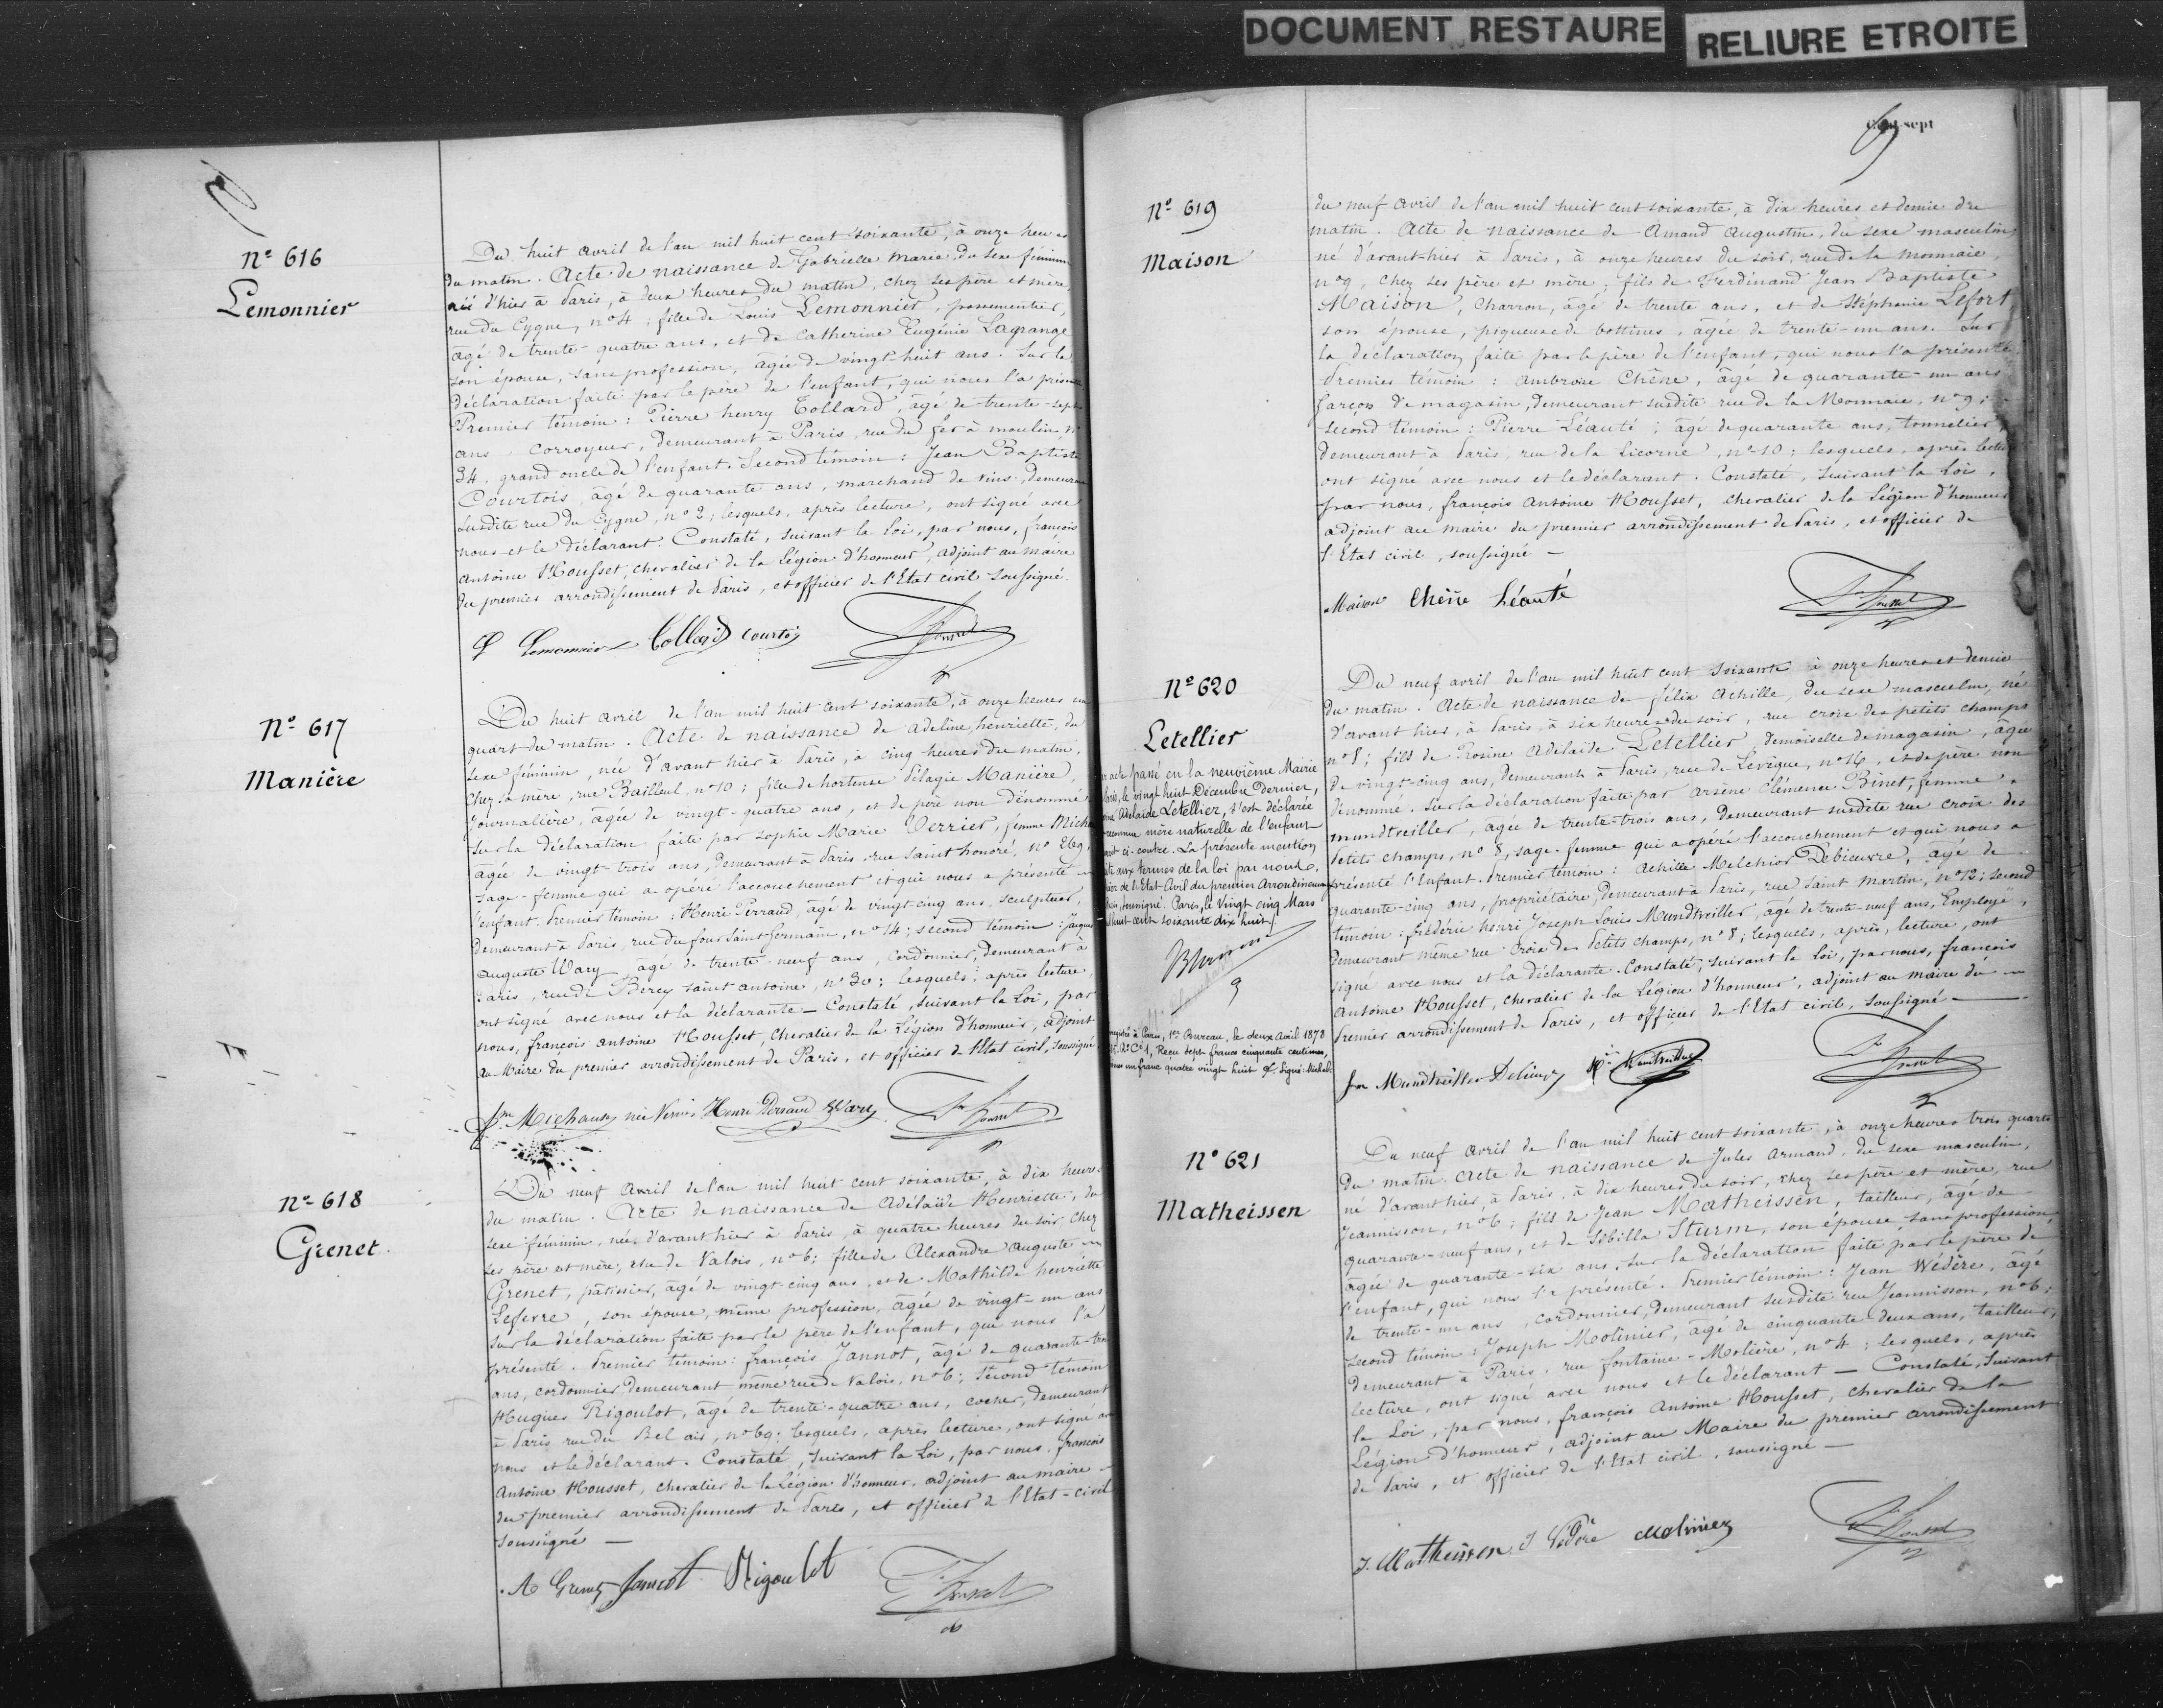 DOCUMENT RESTAURE
RELIURE ETROITE
Nº 616
Lemonnier
Du huit avril de l'an mil huit cent soixante, à onze heures
du matin. Acte de naissance de Gabrielle Marie, du sexe féminin
née d'hier à Paris, à deux heures du matin, chez ses père et mère,
rue du Cygne, nº 4; fille de Louis Lemonnier, passementier,
âgé de trente-quatre ans, et de Catherine Eugénie Lagrange
son épouse, sans profession, âgée de vingt-huit ans. Sur la
déclaration faite par le père de l'enfant, qui nous l'a présenté.
Premier témoin: Pierre henry Collard, âgé de trente-sept
ans, corroyeur, demeurant à Paris, rue du fer à moulin, nº
34, grand oncle de l'enfant. Second témoin: Jean Baptiste
Courtois, âgé de quarante ans, marchand de vins, demeurant
susdite rue du Cygne, nº 2; lesquels, après lecture, ont signé avec
nous et le déclarant. Constaté, suivant la Loi, par nous, françois
antoine Housset, chevalier de la Légion d'honneur, adjoint au maire
du premier arrondissement de Paris, et officier de l'Etat civil soussigné.
Lemonnier Collard Courtois
Nº 617
Manière
Du huit avril de l'an mil huit cent soixante, à onze heures un
quart du matin. Acte de naissance de adeline henriette, du
sexe féminin, née d'avant hier à Paris, à cinq heures du matin,
chez sa mère, rue Bailleul, nº 10; fille de hortense Pélagie Manière,
journalière, âgée de vingt-quatre ans, et de père non dénommé.
Sur la déclaration faite par Sophie Marie Verrier, femme Mich
âgée de vingt-trois ans, demeurant à Paris, rue Saint honoré, nº 269,
sage-femme qui a opéré l'accouchement et qui nous a présenté
l'enfant. Premier témoin: Henri Perraud, âgé de vingt-cinq ans, sculpteur,
demeurant à Paris, rue du four Saint Germain, nº 14; second témoin: Jacques
auguste Wary, âgé de trente-neuf ans, cordonnier, demeurant à
Paris, rue de Bercy saint antoine, nº 30; lesquels, après lecture,
ont signé avec nous et la déclarante — Constaté, suivant la Loi, par
nous, françois antoine Housset, Chevalier de la Légion d'honneur, adjoint
au Maire du premier arrondissement de Paris, et officier de l'Etat civil, soussigné
Henri Wary
Nº 618
Grenet
Du neuf Avril de l'an mil huit cent soixante, à dix heures
du matin. Acte de naissance de Adélaïde Henriette, du
sexe féminin, née d'avant hier à Paris, à quatre heures du soir, chez
ses père et mère, rue de Valois, nº 6; fille de Alexandre Auguste
Grenet, pâtissier, âgé de vingt-cinq ans, et de Mathilde henriette
Lefevre, son épouse, même profession, âgée de vingt-un ans
Sur la déclaration faite par le père de l'enfant, qui nous l'a
présenté. Premier témoin: françois Jannot, âgé de quarante-trois
ans, cordonnier, demeurant même rue de Valois, nº 6; Second témoin
Hugues Rigoulot, âgé de trente-quatre ans, cocher, demeurant
à Paris rue du Bel air, nº 69; lesquels, après lecture, ont signé avec
nous et le déclarant. Constaté, suivant la Loi, par nous, françois
Antoine Housset, chevalier de la Légion d'honneur, adjoint au maire
du premier arrondissement de Paris, et officier de l'Etat-civil
soussigné —
A Grenet Jannot Rigoulot
Cent-sept
Nº 619
Maison
du neuf avril de l'an mil huit cent soixante, à dix heures et demie du
matin. Acte de naissance de Amand Augustin, du sexe masculin,
né d'avant-hier à Paris, à onze heures du soir, rue de la monnaie,
nº 9, chez ses père et mère; fils de Ferdinand Jean Baptiste
Maison, charron, âgé de trente ans, et de Stéphanie Lefort
son épouse, piqueuse de bottines, âgée de trente-un ans. Sur
la déclaration faite par le père de l'enfant, qui nous l'a présenté
Premier témoin: ambroise Chêne, âgé de quarante-un ans
garçon de magasin, demeurant susdite rue de la Monnaie, nº 9;
second témoin: Pierre Léauté; âgé de quarante ans, tonnelier,
demeurant à Paris, rue de la Licorne, nº 10; lesquels, après lecture
ont signé avec nous et le déclarant. Constaté, suivant la Loi,
par nous, françois antoine Housset, chevalier de la Légion d'honneur
adjoint au maire du premier arrondissement de Paris, et officier de
l'Etat civil, soussigné —
Maison Chêne Léauté
Nº 620
Letellier
acte passé en la neuvième Mairie
Paris, le vingt huit Décembre dernier,
Adelaïde Letellier, s'est déclarée
reconnue mère naturelle de l'enfant
ci-contre. La présente mention
faite aux termes de la loi par nous
de l'Etat Civil du premier Arrondissement
soussigné. Paris, le Vingt cinq Mars
mil huit cent soixante dix huit.
à Paris, 1er Bureau, le deux avril 1878
Reçu sept francs cinquante centimes,
un franc quatre vingt huit
Du neuf avril de l'an mil huit cent soixante à onze heures et demie
du matin. Acte de naissance de félix achille, du sexe masculin, né
d'avant hier, à Paris, à six heures du soir, rue croix des petits champs
nº 8; fils de Rosine Adelaïde Letellier, demoiselle de magasin, âgée
de vingt-cinq ans, demeurant à Paris, rue de Lévèque, nº 16, et de père non
dénommé. Sur la déclaration faite par arsène Clémence Binet, femme
mundtweiller, âgée de trente-trois ans, demeurant susdite rue croix des
Petits champs, nº 8, sage-femme qui a opéré l'accouchement et qui nous a
présenté l'Enfant. Premier témoin: Achille Melchior Debieuvre, âgé de
quarante-cinq ans, propriétaire, demeurant à Paris, rue Saint Martin, nº 12; Second
témoin: frédéric henri Joseph Louis Mundtweiller, âgé de trente-neuf ans, Employé,
demeurant même rue Croix des Petits champs, nº 8; lesquels, après, lecture, ont
signé avec nous et la déclarante. Constaté, suivant la Loi, par nous, françois
Antoine Housset, chevalier de la Légion d'honneur, adjoint au maire du
Premier arrondissement de Paris, et officier de l'Etat civil, soussigné —
Nº 621
Matheissen
Du neuf avril de l'an mil huit cent soixante, à onze heures trois quarts
du matin. Acte de naissance de Jules armand, du sexe masculin,
né d'avant hier, à Paris, à dix heures du soir, chez ses père et mère, rue
Jeannisson, nº 6; fils de Jean Matheissen, tailleur, âgé de
quarante-neuf ans, et de Sibilla Sturm, son épouse, sans profession,
âgée de quarante-six ans. Sur la déclaration faite par le père de
l'enfant, qui nous l'a présenté. Premier témoin: Jean Wédère, âgé
de trente-un ans, cordonnier, demeurant susdite rue Jeannisson, nº 6;
second témoin: Joseph Molinier, âgé de cinquante-deux ans, tailleur,
demeurant à Paris, rue fontaine-Molière, nº 4; lesquels, après
lecture, ont signé avec nous et le déclarant — Constaté, Suivant
la Loi, par nous, françois Antoine Housset, chevalier de la
Légion d'honneur, adjoint au Maire du premier arrondissement
de Paris, et officier de l'Etat civil, soussigné —
J. Matheissen Molinier